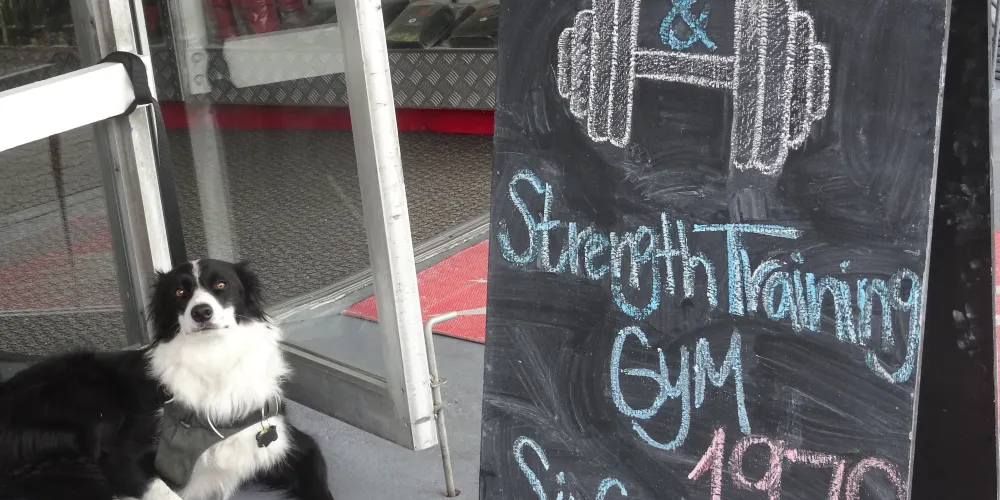 &
Strength Training
Gym
Since
1970